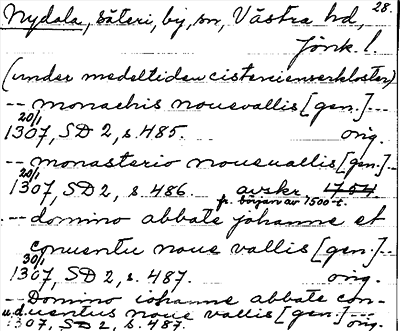 28.
Nydala, säteri, by, sn, Västra hd,
Jönk. l.
(under medeltiden cistercienserkloster)
-- monachis nouevallis [gen.] --
20/1
1307, SD 2, s. 485. orig.
-- monasterio noueuallis [gen.] --
20/1
1307, SD 2, s. 486. avskr 1754
fr. början av 1500-t.
-- domino abbate johanne et
conuentu noue vallis [gen.] --
30/1
1307, SD 2, s. 487. orig.
-- Domino iohanne abbate con-
uentus noue vallis [gen.] --
u.d.
1307, SD 2, s. 487. orig.